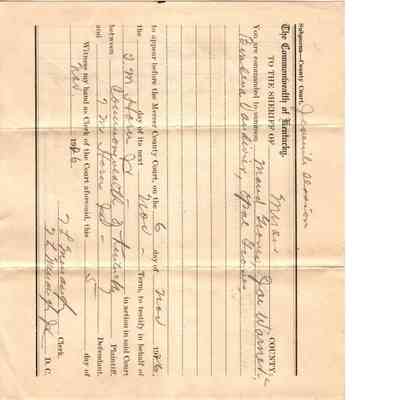 Subpoena—County Court. Juvenile Session
The Commonwealth of Kentucky.
TO THE SHERIFF OF Mercer COUNTY:
You are commanded to summon Maud Grover, Joe Warner,
to appear before the Mercer County Court, on the 6 day of Nov 1926.
the day of its next Nov — Term, to testify in behalf of
J. M. Horn Jr.
between Commonwealth of Kentucky Plaintiff,
in action in said Court
and J. M. Horn Jr. Defendant.
Witness my hand as Clerk of the Court aforesaid, this 5 day of
Nov. 1926.
Clerk.
D. C.